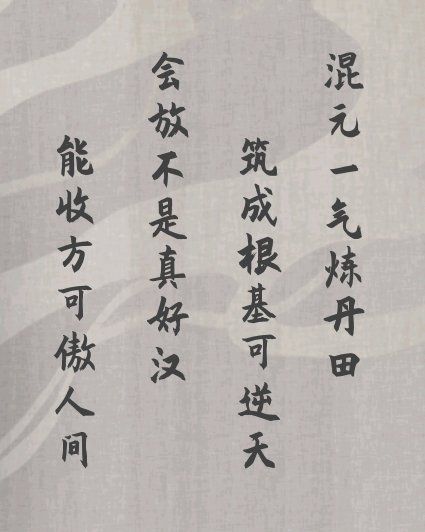 混元一气炼丹田
筑成根基可逆天
会放不是真好汉
能收方可傲人间